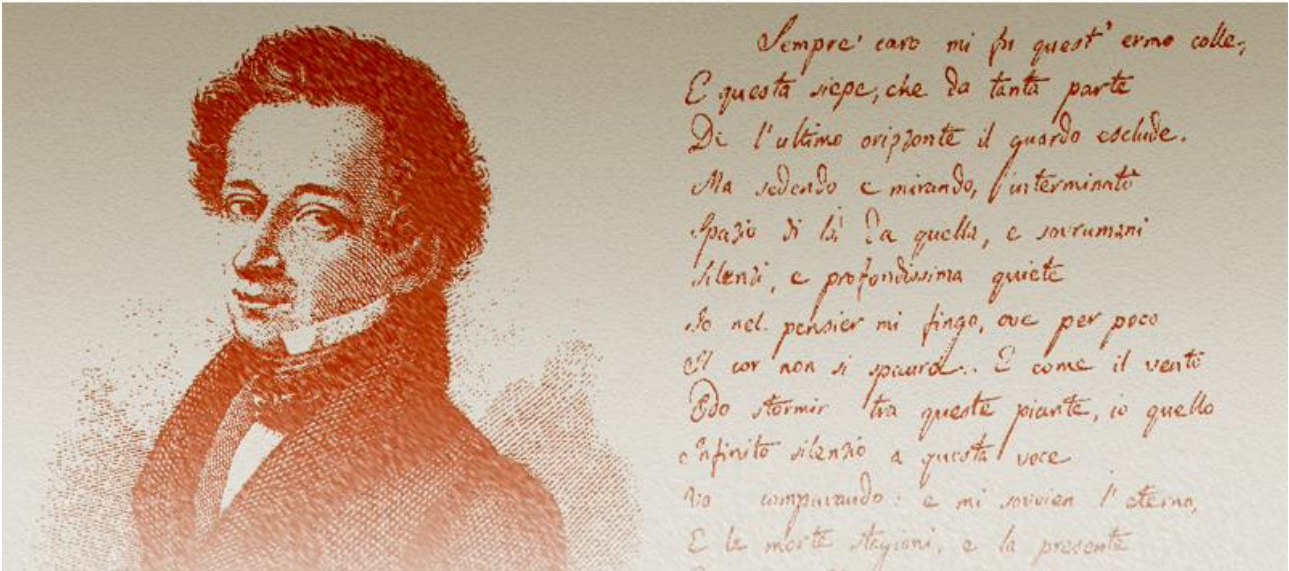 Sempre caro mi fu quest' ermo colle,
E questa siepe, che da tanta parte
De l'ultimo orizzonte il guardo esclude.
Ma sedendo e mirando, interminato
Spazio di là da quella, e sovrumani
Silenzi, e profondissima quiete
Io nel pensier mi fingo, ove per poco
Il cor non si spaura. E come il vento
Odo stormir tra queste piante, io quello
Infinito silenzio a questa voce
Vo comparando: e mi sovvien l'eterno,
E le morte stagioni, e la presente